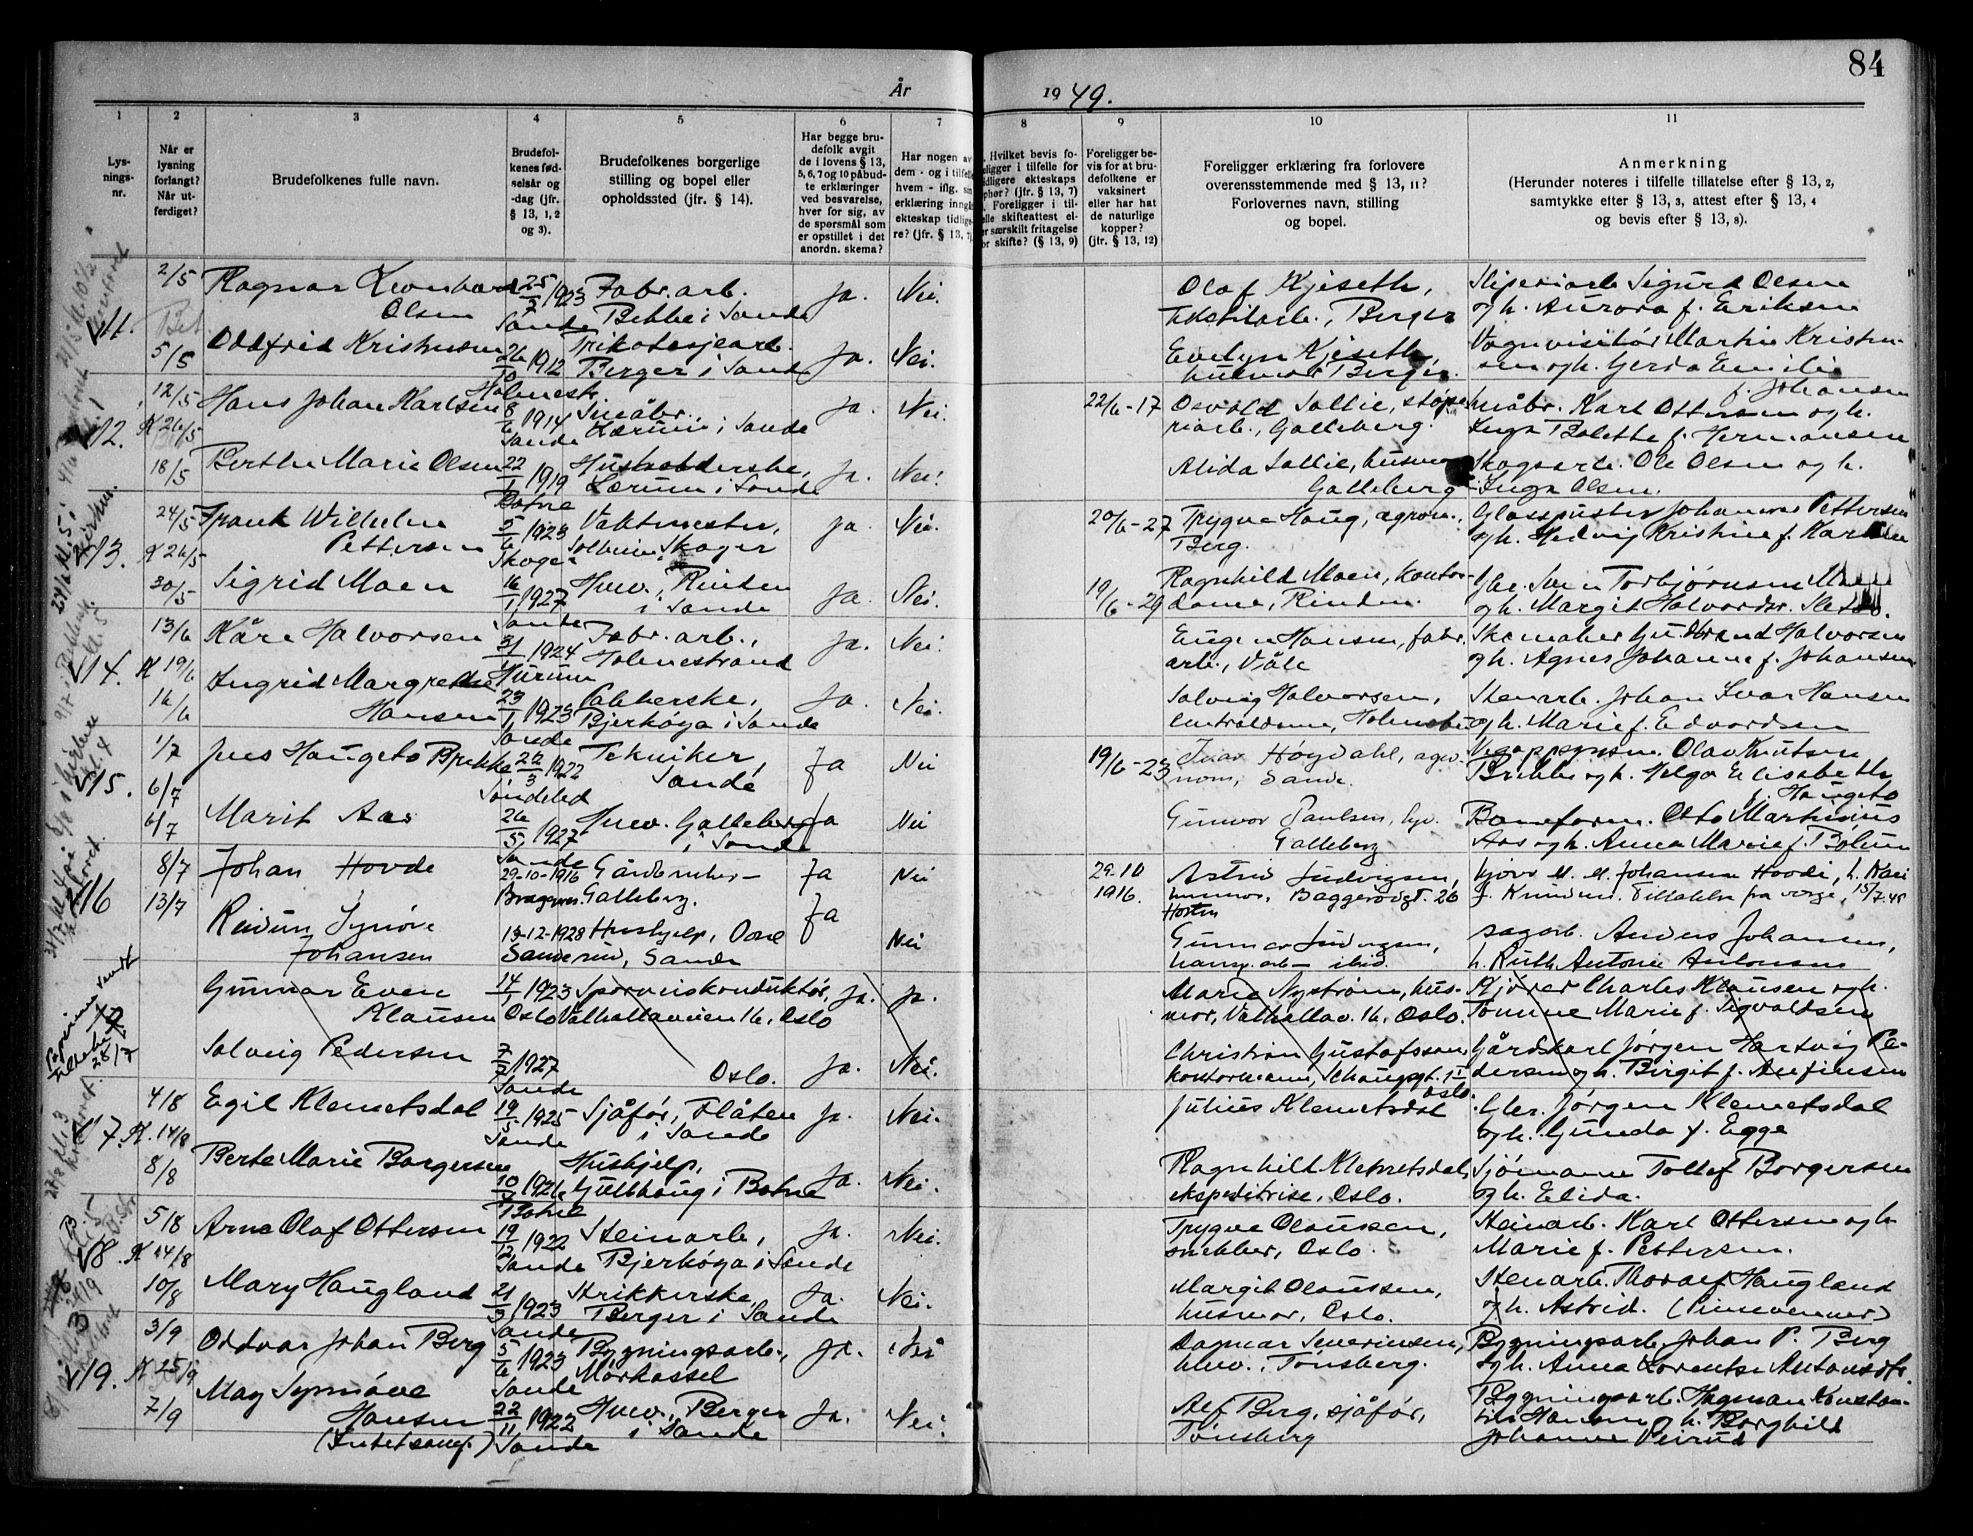 84
År
1949.
1
2
3
4
5
6
7
8
9
10
11
Lys-
nings-
nr.
Når er
lysning
forlangt?
Når ut-
ferdiget?
Brudefolkenes fulle navn.
Brudefol-
kenes fød-
selsår og
-dag (jfr.
§ 13, 1, 2
og 3).
Brudefolkenes borgerlige
stilling og bopel eller
opholdssted (jfr. § 14).
Har begge bru-
defolk avgit
de i lovens § 13,
5, 6, 7 og 10 påbud-
te erklæringer
ved besvarelse,
hver for sig, av
de spørsmål som
er opstillet i det
anordn. skema?
Har nogen av
dem - og i tilfelle
hvem - iflg. sin
erklæring inngått
ekteskap tidlige-
re? (jfr. § 13, 7)
Hvilket bevis fo-
religger i tilfelle for
tidligere ekteskaps
ophør? (jfr. § 13, 7)
Foreligger i til-
felle skifteattest el-
ler særskilt fritagelse
for skifte? (§ 13, 9)
Foreligger be-
vis for at bru-
defolkene er
vaksinert
eller har hat
de naturlige
kopper?
(jfr. § 13, 12)
Foreligger erklæring fra forlovere
overensstemmende med § 13, 11?
Forlovernes navn, stilling
og bopel.
Anmerkning
(Herunder noteres i tilfelle tillatelse efter § 13, 2,
samtykke efter § 13, 3, attest efter § 13, 4
og bevis efter § 13, 8).
11.
2/5
5/5
Ragnar Leonhard
Olsen
25/5 1923
Sande
Fabr.arb.
Bekke i Sande
Ja.
Nei.
Olaf Kjeseth,
tekstilarb., Berger
Sliperiarb. Sigurd Olsen
og h. Aurora f. Eriksen
Oddfrid Kristensen
26/10 1912
Holmestr.
Trikotasjearb.
Berger i Sande
Ja.
Nei.
Evelyn Kjeseth,
husmor, Berger.
Vognvisitør Martin Kristen-
sen og h. Gerda Emilie
f. Johansen
12.
12/5
K 26/5
18/5
Hans Johan Karlsen
8/6 1914
Sande
Småbr.,
Lærum i Sande
Ja.
Nei.
22/6-17
Osvald Sollie, støpe-
riarb., Galleberg.
Småbr. Karl Ottersen og h.
Inga Bolette f. Hermansen
Berthe Marie Olsen
22/1 1919
Botne
Husholderske,
Lærum i Sande
Ja.
Nei.
Alida Sollie, husmor
Galleberg
Skogsarb. Ole Olsen og h.
Inga Olsen.
13.
24/5
K 26/5
30/5
Frank Wilhelm
Pettersen
5/6 1923
Skoger
Vaktmester,
Solheim, Skoger
Ja.
Nei.
20/6-27
Trygve Haug, agron.,
Berg.
Glasspuster Johannes Pettersen
og h. Hedvig Kristine f. Karlsen
Sigrid Moen
16/1 1927
Sande
Husv., Rinden
i Sande
Ja.
Nei.
19/6-29
Ragnhild Moen, kontor-
dame, Rinden.
Gbr. Sven Torbjørnsen Moen
og h. Margit Halvordsr.
14.
13/6
K 19/6
16/6
Kåre Halvorsen
31/1 1924
Hurum
Fabr.arb.,
Holmestrand
Ja.
Nei.
Eugen Hansen, fabr.
arb., Våle
Skomaker Gudbrand Halvorsen
og h. Agnes Johanne f. Johansen
Ingrid Margrethe
Hansen
23/1 1923
Sande
Pakkerske,
Bjerkøya i Sande
Ja.
Nei.
Solveig Halvorsen,
Stenarb. Johan Ivar Hansen
og h. Marie f. Edvardsen
15.
1/7
6/7
6/7
Jens Haugeto Brekke
22/3 1922
Søndeled
Tekniker,
Sande
Ja
Nei
19/6-23
Ivar Høydahl, agro-
nom, Sande
Vegoppsynsm. Olav Knutsen
Brekke og h. Helga Elisabeth
f. Haugeto
Marit Aas
26/5 1927
Sande
Husv. Galleberg
i Sande
Ja
Nei
Gunvor Paulsen,
Galleberg
Baneform. Otto Martinius
Aas og h. Anna Marie f. Bølum
16
8/7
13/7
Johan Hovde
29-10-1916
Bragernes
Gårdbruker -
Galleberg.
Ja
Nei
29.10
1916.
Astrid Ludvigsen,
husmor, Baggerødgt. 26
Horten
Kjører M. M. Johansen Hovde, h. Kari
f. Knudsen. Tillatelse fra verge, 15/7.48
Reidun Synøve
Johansen
13-12-1928
Sande
Hushjelp,
Sande
Ja
Nei
Gunnar Ludvigsen,
transp.arb. ibid.
sagarb. Anders Johansen,
h. Ruth Antonie Antonsen
Gunnar Even
Klausen
14/1 1923
Oslo
Sporveiskonduktør,
Valhallaveien 16, Oslo
Ja.
Ja.
Marie Nystrøm, hus-
mor, Valhallav. 16, Oslo.
Kjører Charles Klausen og h.
Tomine Marie f. Sigvaldsen
Solveig Pedersen
7/2 1927
Sande
Oslo.
Ja.
Nei.
Christian Gustafsson,
kontormann, Schougsgt. 1 I
Oslo.
Gårdkarl Jørgen Hartvig Pe-
dersen og h. Birgit f. Anfinsen
17.
4/8
K. 14/8
8/8
Egil Klemetsdal
19/5 1925
Sande
Sjåfør, Flåten
i Sande
Ja.
Nei.
Julius Klemetsdal
Gbr. Jørgen Klemetsdal
og h. Gunda f. Egge
Berte Marie Borgersen
10/ 1926
Botne
Hushjelp,
Gullhaug i Botne
Ja.
Nei.
Ragnhild Klemetsdal,
ekspeditrise, Oslo.
Sjømann Tollef Borgersen
og h. Elida.
18.
5/8
K 14/8
10/8
Arne Olaf Ottersen
19/12 1922
Sande
Steinarb.,
Bjerkøya i Sande
Ja.
Nei.
Trygve Olaussen,
snekker, Oslo.
Steinarb. Karl Ottersen og h.
Marie f. Pettersen.
Mary Haugland
21/3 1923
Sande
Strikkerske,
Berger i Sande
Ja.
Nei.
Margit Olaussen,
husmor, Oslo.
Stenarb. Thoralf Haugland
og h. Astrid. (Pinsevenner)
19.
3/9
K 25/9
7/9
Oddvar Johan Berg
5/6 1923
Sande
Bygningsarb.,
Mørkassel
Ja.
Nei
Dagmar Severinsen,
husv., Tønsberg.
Bygningsarb. Johan P. Berg
og h. Anna Lorentse Antonsdtr.
May Synnøve
Hansen
(Intet samf.)
22/11 1922
Sande
Husv., Berger
i Sande
Ja.
Nei.
Alf Berg, sjåfør,
Tønsberg
Bygningsarb. Hagman Konstan-
tin Hansen og h. Borghild
Johanne Veirud